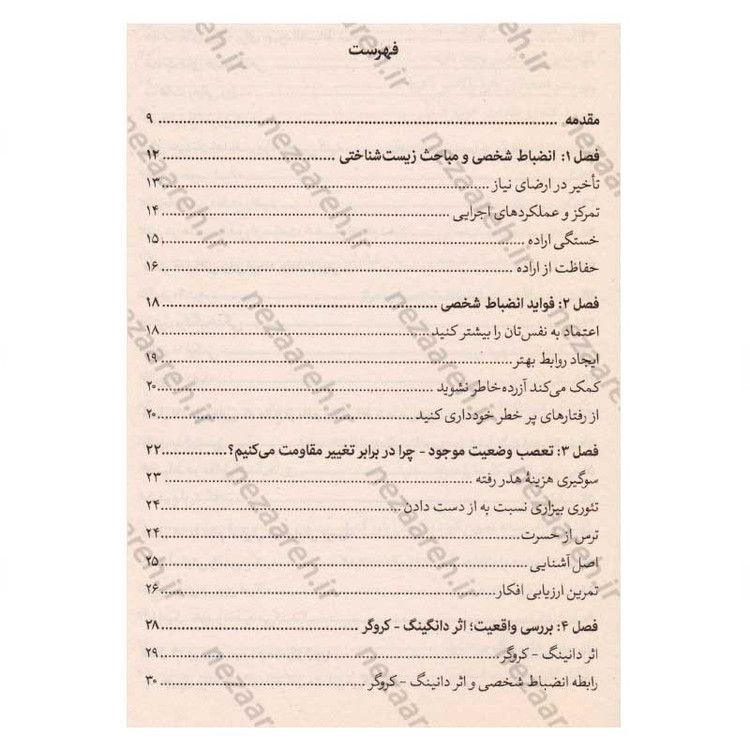 فهرست
مقدمه ........ ۹
فصل ۱: انضباط شخصی و مباحث زیست‌شناختی ........ ۱۲
تأخیر در ارضای نیاز ........ ۱۳
تمرکز و عملکردهای اجرایی ........ ۱۴
خستگی اراده ........ ۱۵
حفاظت از اراده ........ ۱۶
فصل ۲: فواید انضباط شخصی ........ ۱۸
اعتماد به نفس‌تان را بیشتر کنید ........ ۱۸
ایجاد روابط بهتر ........ ۱۹
کمک می‌کند آزرده‌خاطر نشوید ........ ۲۰
از رفتارهای پر خطر خودداری کنید ........ ۲۰
فصل ۳: تعصب وضعیت موجود - چرا در برابر تغییر مقاومت می‌کنیم؟ ........ ۲۲
سوگیری هزینهٔ هدر رفته ........ ۲۳
تئوری بیزاری نسبت به از دست دادن ........ ۲۴
ترس از حسرت ........ ۲۴
اصل آشنایی ........ ۲۵
تمرین ارزیابی افکار ........ ۲۶
فصل ۴: بررسی واقعیت؛ اثر دانگینگ - کروگر ........ ۲۸
اثر دانینگ - کروگر ........ ۲۹
رابطه انضباط شخصی و اثر دانینگ - کروگر ........ ۳۰
nezaareh.ir